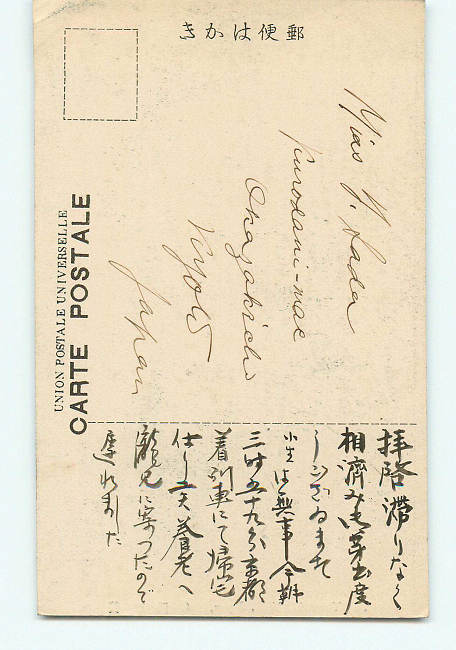 きかは便郵
UNION POSTALE UNIVERSELLE
CARTE POSTALE
Miss Y. Sada
Kurodani-mae
Okazakicho
Kyoto
Japan
拝啓滞りなく
相済み御芽出度
うござゐます
小生は無事今朝
三時五十九分京都
着列車にて帰宅
仕り候 養老へ
兄に寄つたので
遅れました